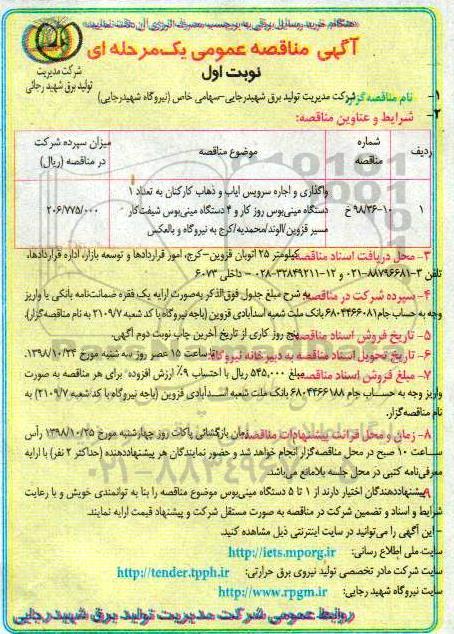 هنگام خرید وسایل برقی به برچسب مصرف انرژی آن دقت نمایید
آگهی مناقصه عمومی یک‌مرحله ای
نوبت اول
شرکت مدیریت
تولید برق شهید رجائی
۱- نام مناقصه‌گزار: شرکت مدیریت تولید برق شهیدرجایی-سهامی خاص (نیروگاه شهیدرجایی)
۲- شرایط و عناوین مناقصه:
ردیف
شماره مناقصه
موضوع مناقصه
میزان سپرده شرکت در مناقصه (ریال)
۱
۹۸/۳۶-۱۰ خ
واگذاری و اجاره سرویس ایاب و ذهاب کارکنان به تعداد ۱
دستگاه مینی‌بوس روز کار و ۴ دستگاه مینی‌بوس شیفت‌کار
مسیر قزوین/الوند/محمدیه/کرج به نیروگاه و بالعکس
۲۰۶/۷۷۵/۰۰۰
۳- محل دریافت اسناد مناقصه: کیلومتر ۲۵ اتوبان قزوین-کرج، امور قراردادها و توسعه بازار، اداره قراردادها،
تلفن ۳-۸۸۷۹۶۶۸۱-۰۲۱ و ۱۲-۳۲۸۴۹۲۱۱-۰۲۸ - داخلی ۶۰۷۳
۴- سپرده شرکت در مناقصه: به شرح مبلغ جدول فوق‌الذکر به‌صورت ارایه یک فقره ضمانت‌نامه بانکی یا واریز
وجه به حساب جام ۶۸۰۴۴۶۶۰۸۱ بانک ملت شعبه اسدآبادی قزوین (باجه نیروگاه با کد شعبه ۲۱۰۹/۷ به نام مناقصه‌گزار).
۵- تاریخ فروش اسناد مناقصه: پنج روز کاری از تاریخ آخرین چاپ نوبت دوم آگهی.
۶- تاریخ تحویل اسناد مناقصه به دبیرخانه نیروگاه: تا ساعت ۱۵ عصر روز سه شنبه مورخ ۱۳۹۸/۱۰/۲۴.
۷- مبلغ فروش اسناد مناقصه: مبلغ ۵۴۵,۰۰۰ ریال با احتساب ۹٪ ارزش افزوده برای هر مناقصه به صورت
واریز وجه به حساب جام ۶۸۰۴۴۶۶۱۸۸ بانک ملت شعبه اسدآبادی قزوین (باجه نیروگاه با کد شعبه ۲۱۰۹/۷) به
نام مناقصه‌گزار.
۸- زمان و محل قرائت پیشنهادات مناقصه: زمان بازگشائی پاکات روز چهارشنبه مورخ ۱۳۹۸/۱۰/۲۵ رأس
ساعت ۱۰ صبح در محل مناقصه‌گزار انجام خواهد شد و حضور نمایندگان هر پیشنهاددهنده (حداکثر ۲ نفر) با ارایه
معرفی‌نامه کتبی در محل جلسه بلامانع می‌باشد.
پیشنهاددهندگان اختیار دارند از ۱ تا ۵ دستگاه مینی‌بوس موضوع مناقصه را بنا به توانمندی خویش و با رعایت
شرایط و اسناد و تضمین شرکت در مناقصه به صورت مستقل شرکت و پیشنهاد قیمت ارایه نمایند.
- این آگهی را می‌توانید در سایت اینترنتی ذیل مشاهده کنید.
سایت ملی اطلاع رسانی: http://iets.mporg.ir
سایت شرکت مادر تخصصی تولید نیروی برق حرارتی: http://tender.tpph.ir
سایت نیروگاه شهید رجایی: http://www.rpgm.ir
روابط عمومی شرکت مدیریت تولید برق شهیدرجایی